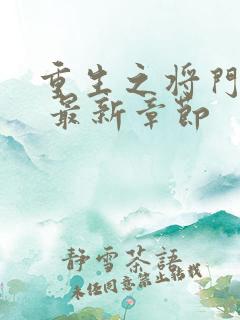 重生之将門
最新章節
靜雪茶語
未经同意禁止转载